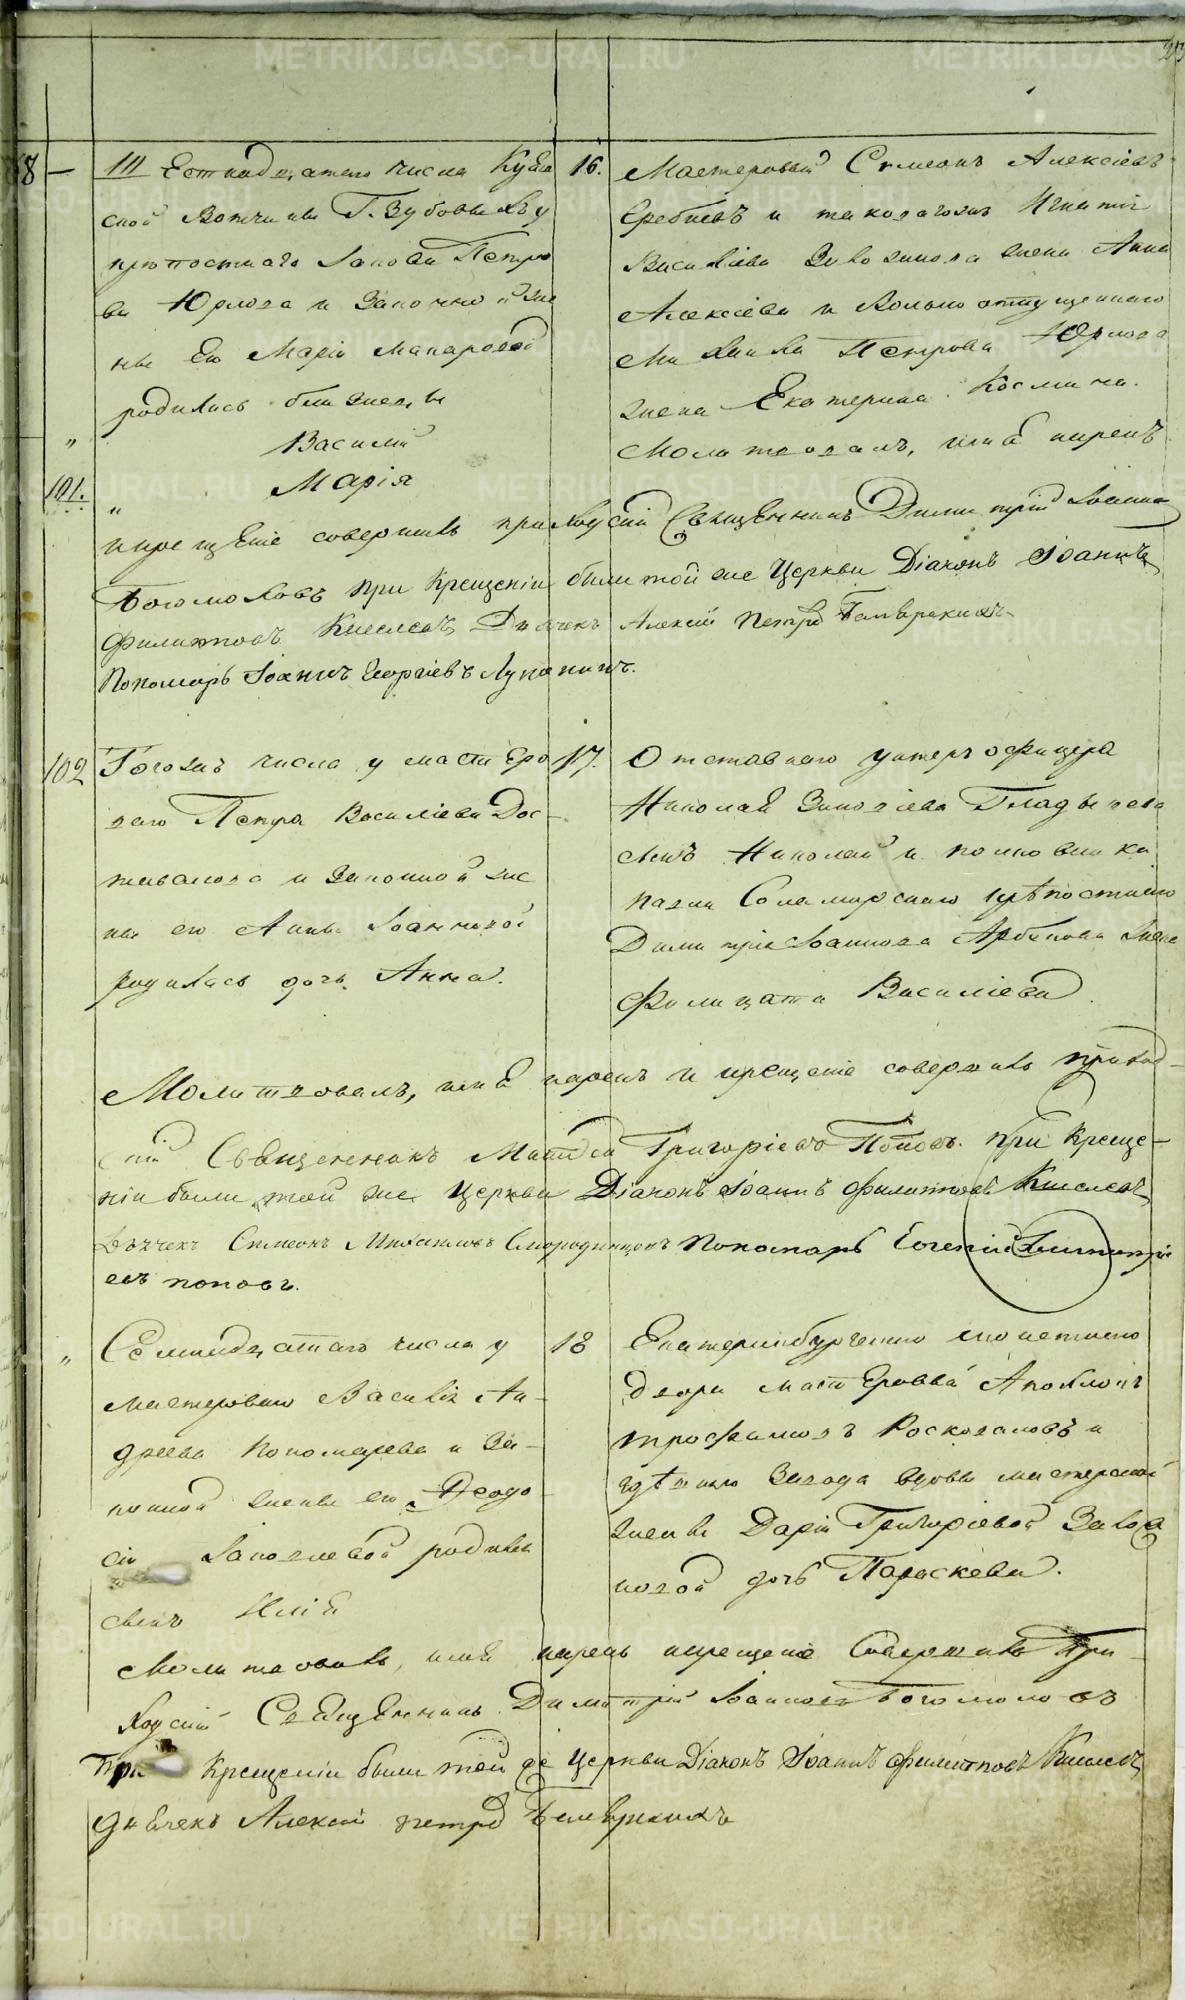 METRIKI.GASO-URAL.RU
8 — Шестнадцатаго числа Кусье 16.
ской Вотчины Г. Зубовыхъ у
крепостнаго Iакова Петро
ва Юрлова и законной же
ны его Марiи Макаровой
родились близнецы
" Василiй
101. " Марiя
Мастеровый Симеонъ Алексiевъ
и такова
Василiева жена Анна
Алексiева и Вольноотпущеннаго
Михаила Петрова Юрлова
жена Екатерина Космина.
Молитвовалъ, имя нарекъ
и крещенiе совершилъ приходскiй Священникъ Димитрiй Iоанновъ
Богомоловъ при Крещенiи были той же Церкви Дiаконъ Iоаннъ
Филипповъ Киселевъ Дьячекъ Алексiй Петровъ
Пономарь Iоаннъ Георгiевъ Лукан
102 Тогожъ числа у мастероваго 17.
Петра Василiева Дос-
товалова и законной же
ны его Анны Iоанновой
родилась дочь Анна.
Отставнаго унтеръ офицера
Николая Гладышева
сынъ Николай и полковника
Соломирскаго крѣпостнаго
Димитрiя Iоаннова жена
Филицата Василiева.
Молитвовалъ, имя нарекъ и крещенiе совершилъ приход-
скiй Священникъ Матвей Григорiевъ Поповъ. при Креще-
нiи были той же Церкви Дiаконъ Iоаннъ Филипповъ Киселевъ
Дьячекъ Симеонъ Михаиловъ Смородинцовъ Пономарь Евгенiй Димитрiе
въ поповъ.
" Семнадцатаго числа у 18
мастероваго Василiя Ан-
дреева Пономарева и За-
конной жены его Феодо
сiи Iаковлевой родился
сынъ Илiя
Екатеринбургскаго монетнаго
двора мастеровый Аполлонъ
Трофимовъ и
завода вдовы мастерской
жены Дарiи Григорiевой
дочь Параскева.
Молитвовалъ, имя нарекъ крещенiе Совершилъ При-
ходскiй Священникъ Димитрiй Iоанновъ Богомоловъ
При Крещенiи были той же Церкви Дiаконъ Iоаннъ Филипповъ Киселевъ
дьячекъ Алексiй петровъ